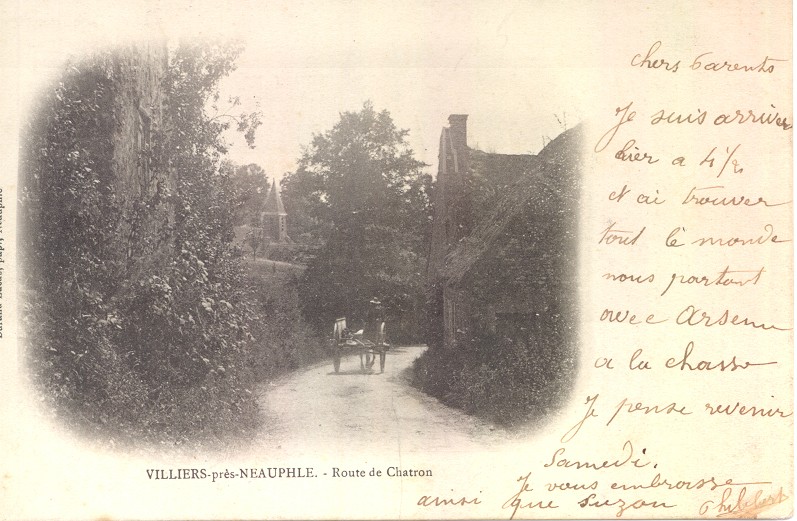 chers Parents
Je suis arriver
hier a 4½
et ai trouver
tout le monde
nous partont
avec Arsene
a la chasse
Je pense revenir
Samedi.
Je vous embrasse
ainsi que Suzon Philibert
VILLIERS-près-NEAUPHLE. - Route de Chatron